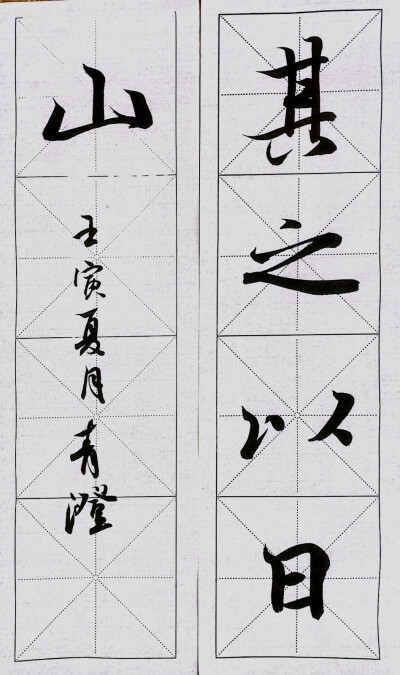 其之以日
山
壬寅夏月青澄